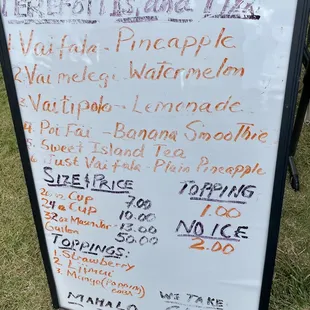 1 Vaifala - Pineapple
2 Vaimelegi Watermelon
3 Vaitipolo - Lemonade
4 Poi Fai - Banana Smoothie
5. Sweet Island Tea
6 Just Vaifala - Plain Pineapple
SIZE & PRICE
Cup 7.00
24oz Cup 10.00
32oz Mason Jar - 13.00
Gallon 50.00
TOPPING
1.00
NO ICE
2.00
TOPPINGS:
1. Strawberry
2. Limu
3. Mango
MAHALO
WE TAKE